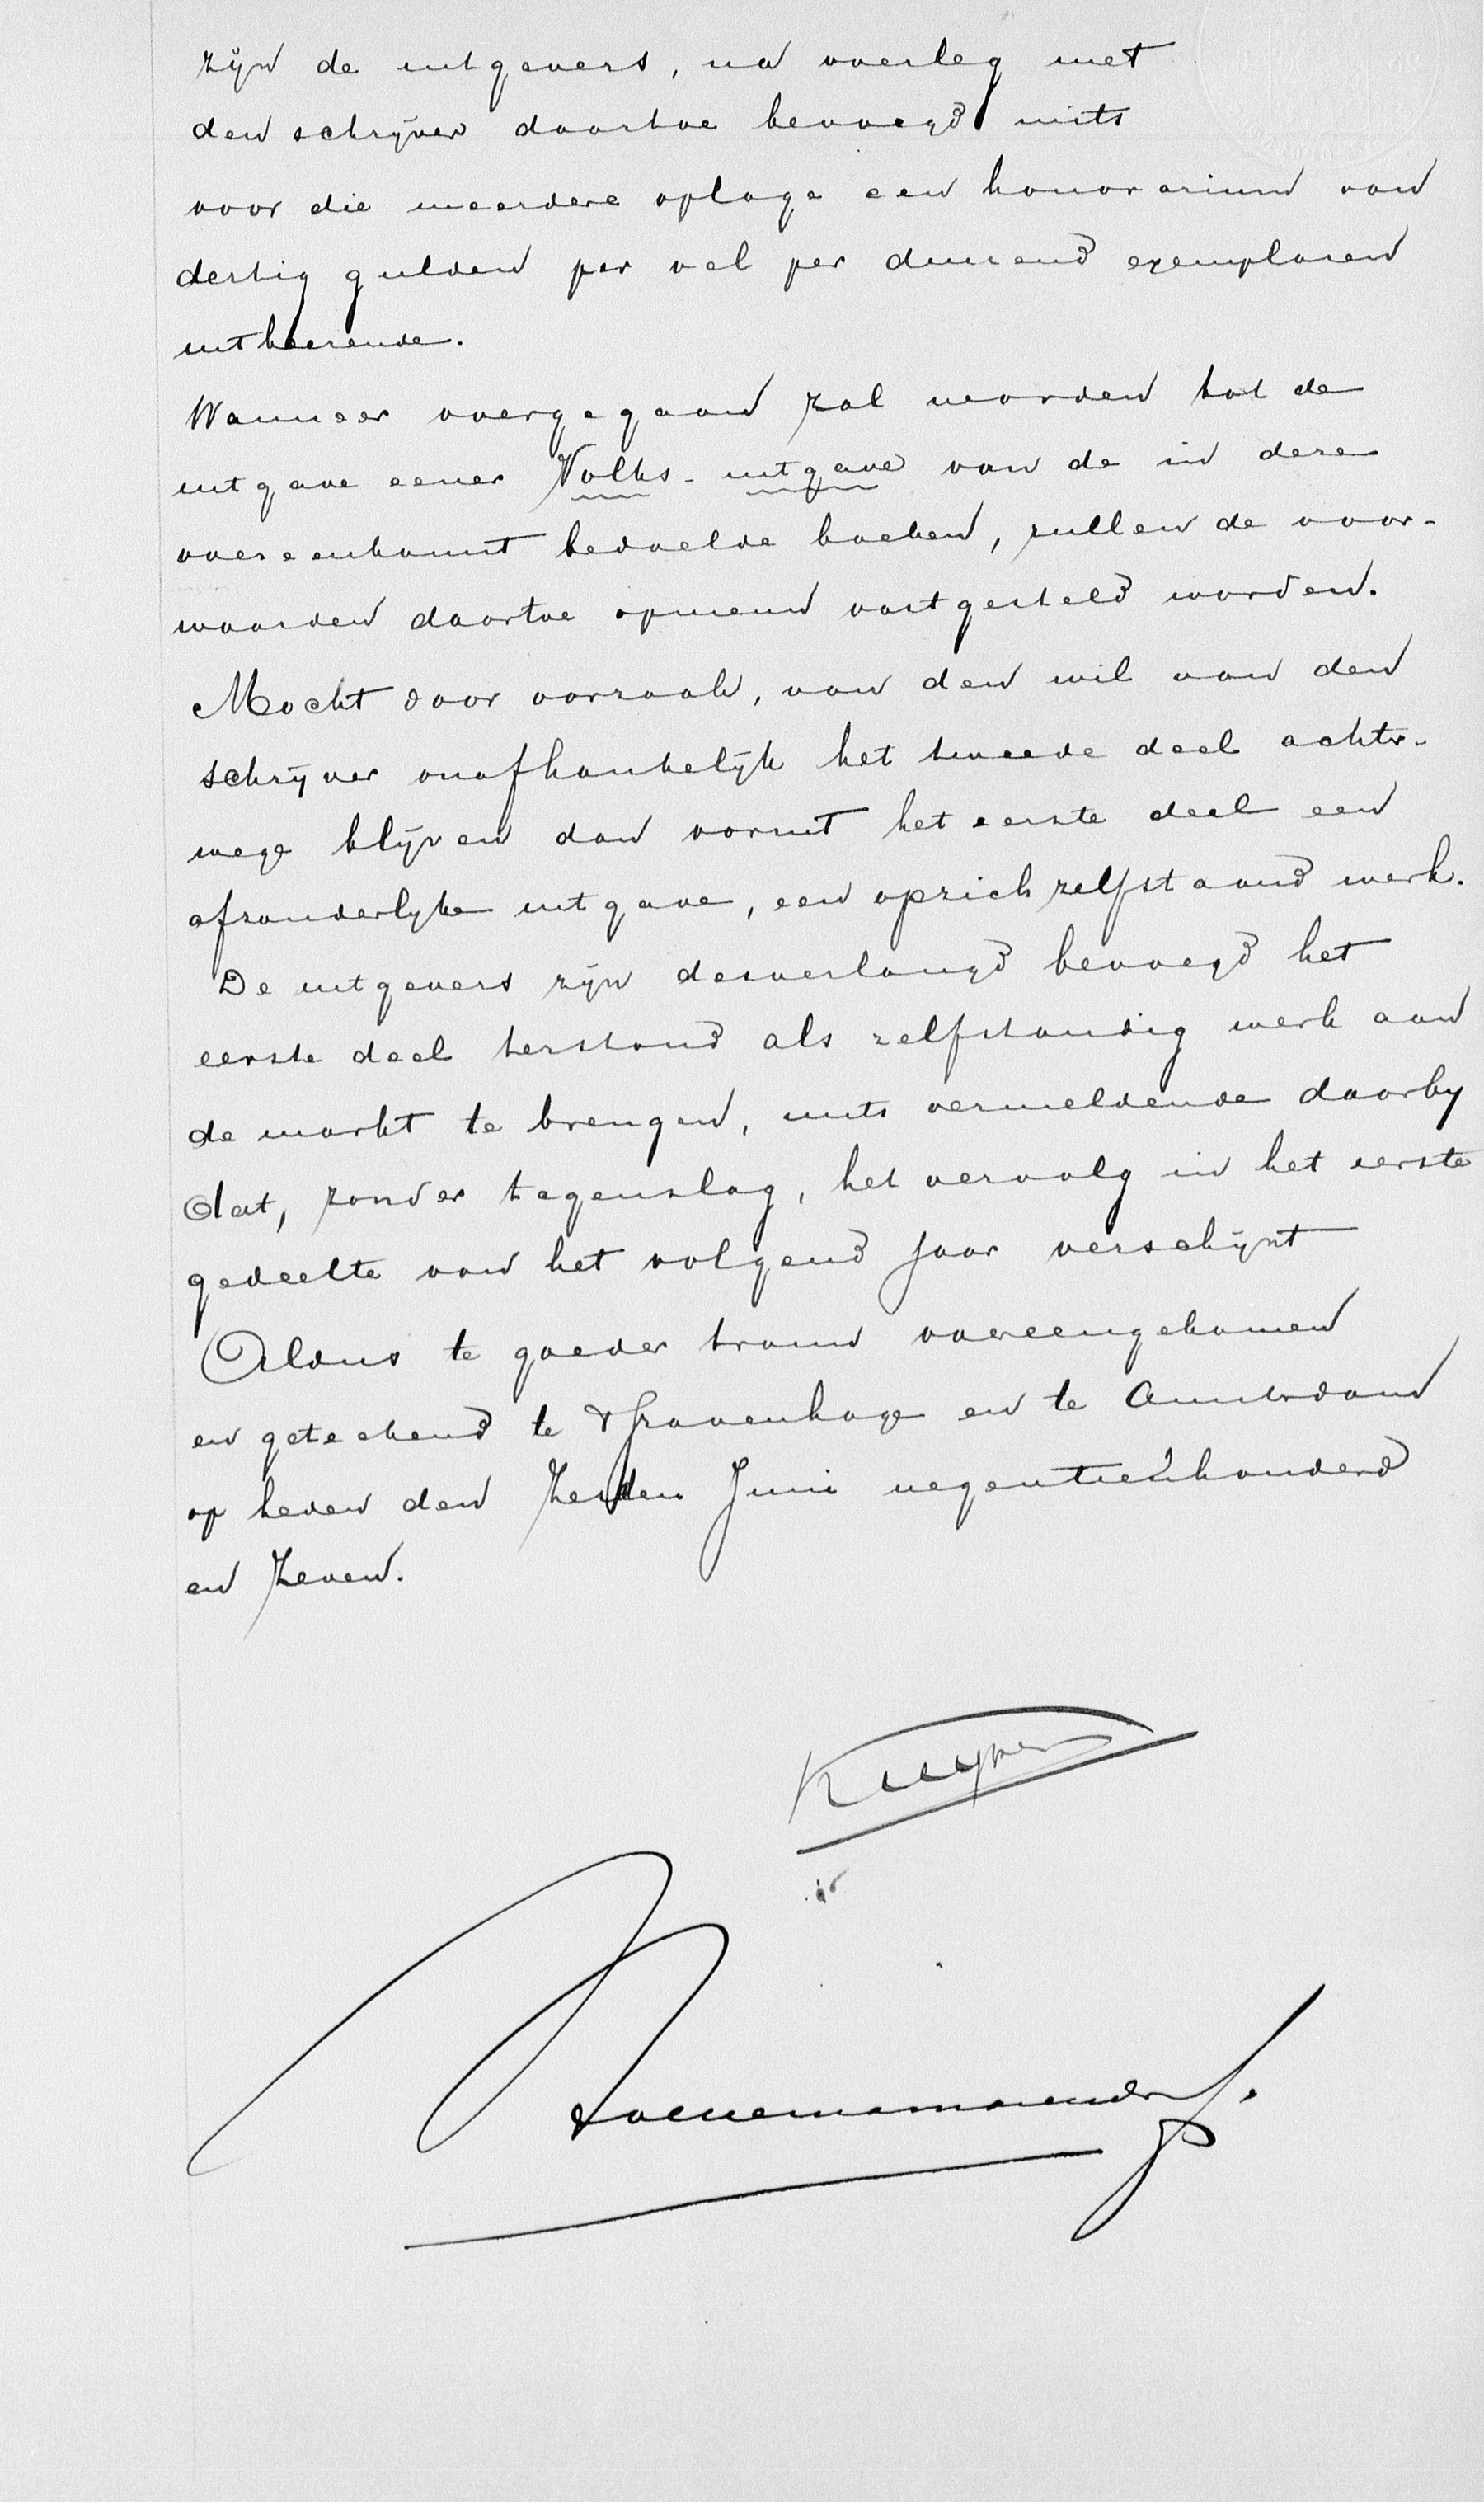 zijn de uitgevers, na overleg met
den schrijver daartoe bevoegd mits
voor die meerdere oplage een honorarium van
dertig gulden per vel per duizend exemplaren
uitkeerende.
Wanneer overgegaan zal worden tot de
uitgave eener Volks-uitgave van de in deze
overeenkomst bedoelde boeken, zullen de voor-
waarden daartoe opnieuw vastgesteld worden.
Mocht door oorzaak, van den wil van den
schrijver onafhankelijk het tweede deel achter-
wege blijven dan vormt het eerste deel een
afzonderlyke uitgave, een opzichzelfstaand werk.
De uitgevers zijn desverlangd bevoegd het
eerste deel terstond als zelfstandig werk aan
de markt te brengen, mits vermeldende daarby
dat, zonder tegenslag, het vervolg in het eerste
gedeelte van het volgend jaar verschijnt
Aldus te goeder trouw overeengekomen
en geteekend te 'sGravenhage en te Amsterdam
op heden den Zesden Juni negentienhonderd
en Zeven.
Kuyper